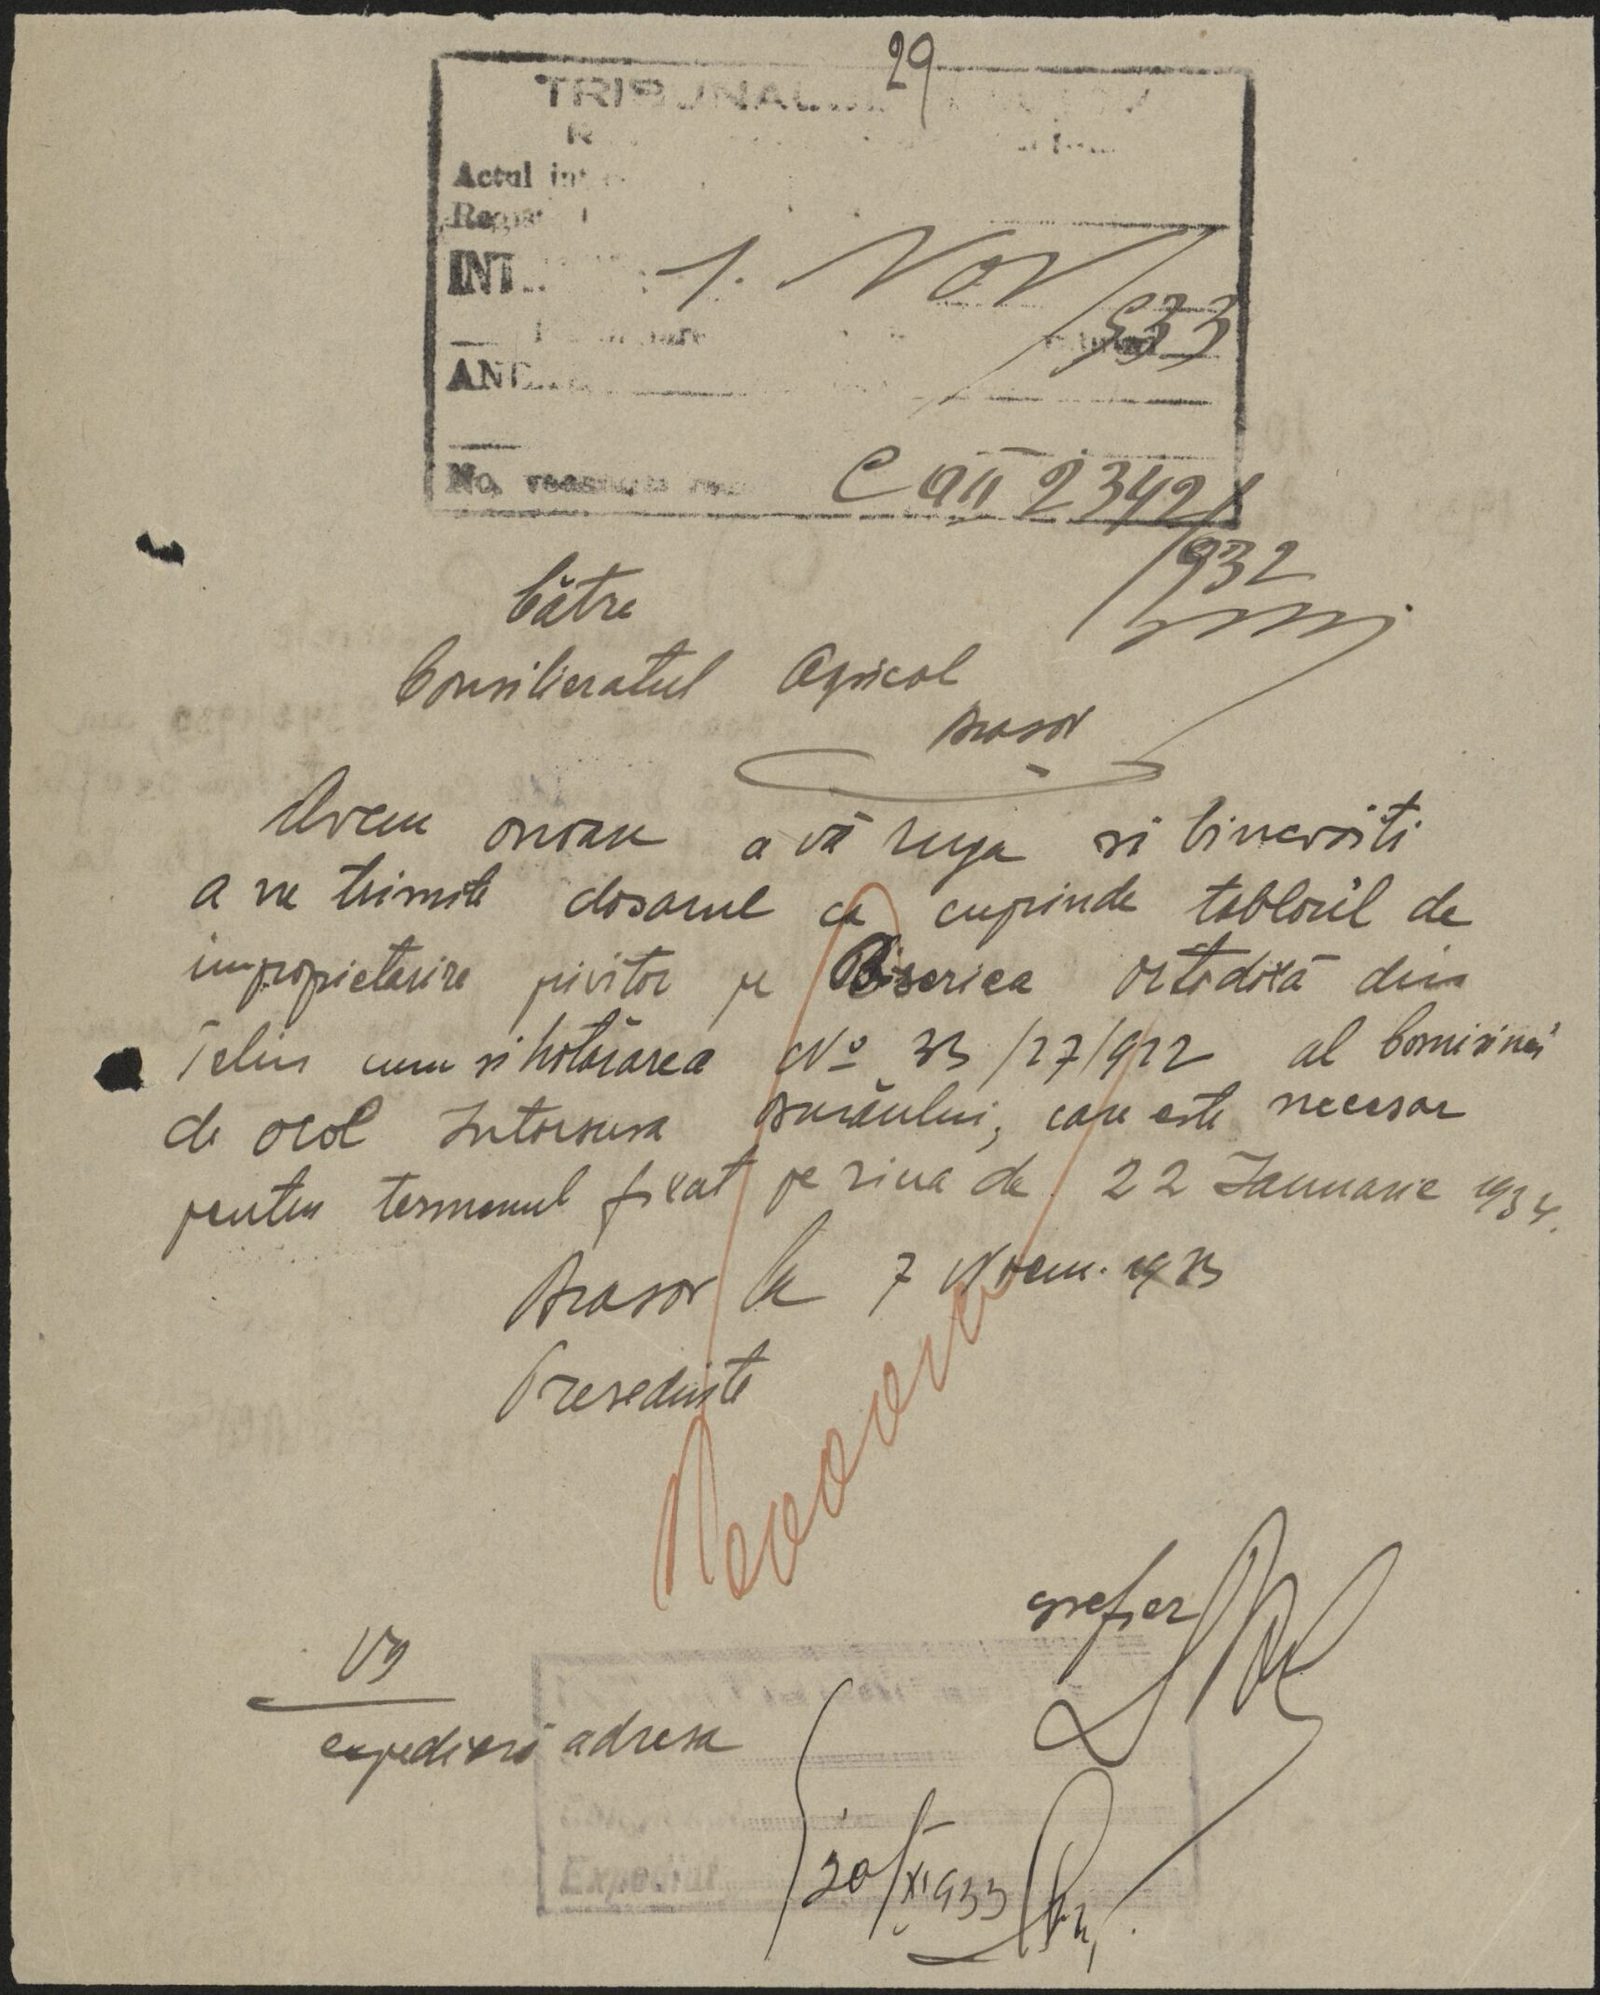 29
TRIBUNALUL
Actul
INT
1. Nov
933
No.
C ag 2342/
1932
Către
Consilieratul Agricol
Brasov
Avem onoare a vă ruga si binevoiti
a ne trimite dosarul ce cuprinde tabloul de
impropietarire privitor pe Biserica ortodoxă din
Teliu cum si hotărârea No 33/27/922 al Comisinei
de ocol Intorsura Buzăului, care este necesar
pentru termenul fixat pe ziua de 22 Januarie 1934.
Brasov la 7 Noem. 1933
Presedinte
grefier
expediat adresa
Expediat
20/XI 933